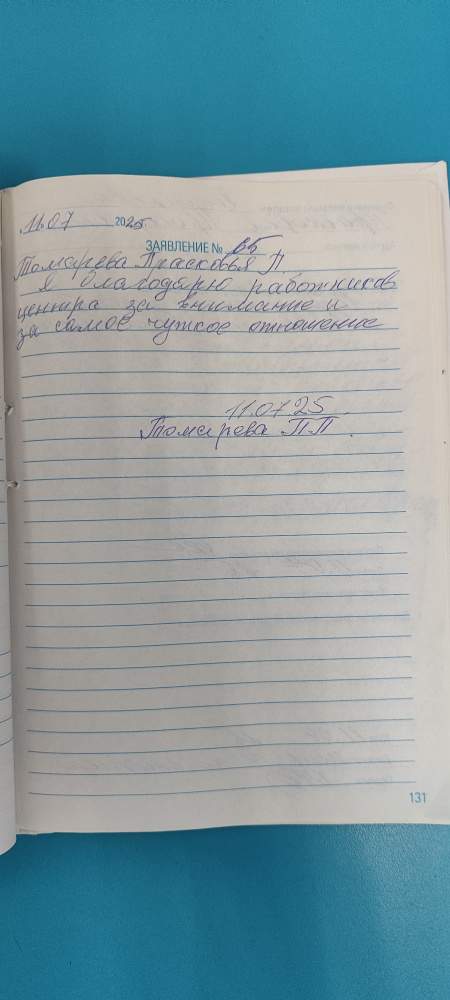 11.07 2025
ЗАЯВЛЕНИЕ № 65
Томарева Прасковья П.
я благодарю работников
центра за внимание и
за самое чуткое отношение
11.07 25
Томарева П.П.
131